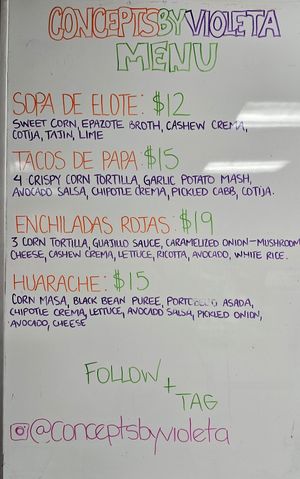 CONCEPTSBYVIOLETA
MENU
SOPA DE ELOTE: $12
SWEET CORN, EPAZOTE BROTH, CASHEW CREMA,
COTIJA, TAJIN, LIME
TACOS DE PAPA: $15
4 CRISPY CORN TORTILLA, GARLIC POTATO MASH,
AVOCADO SALSA, CHIPOTLE CREMA, PICKLED CABB, COTIJA.
ENCHILADAS ROJAS: $19
3 CORN TORTILLA, GUAJILLO SAUCE, CARAMELIZED ONION-MUSHROOM
CHEESE, CASHEW CREMA, LETTUCE, RICOTTA, AVOCADO, WHITE RICE.
HUARACHE: $15
CORN MASA, BLACK BEAN PUREE, PORTOBELLO ASADA,
CHIPOTLE CREMA, LETTUCE, AVOCADO SALSA, PICKLED ONION,
AVOCADO, CHEESE
FOLLOW
+
TAG
@conceptsbyvioleta